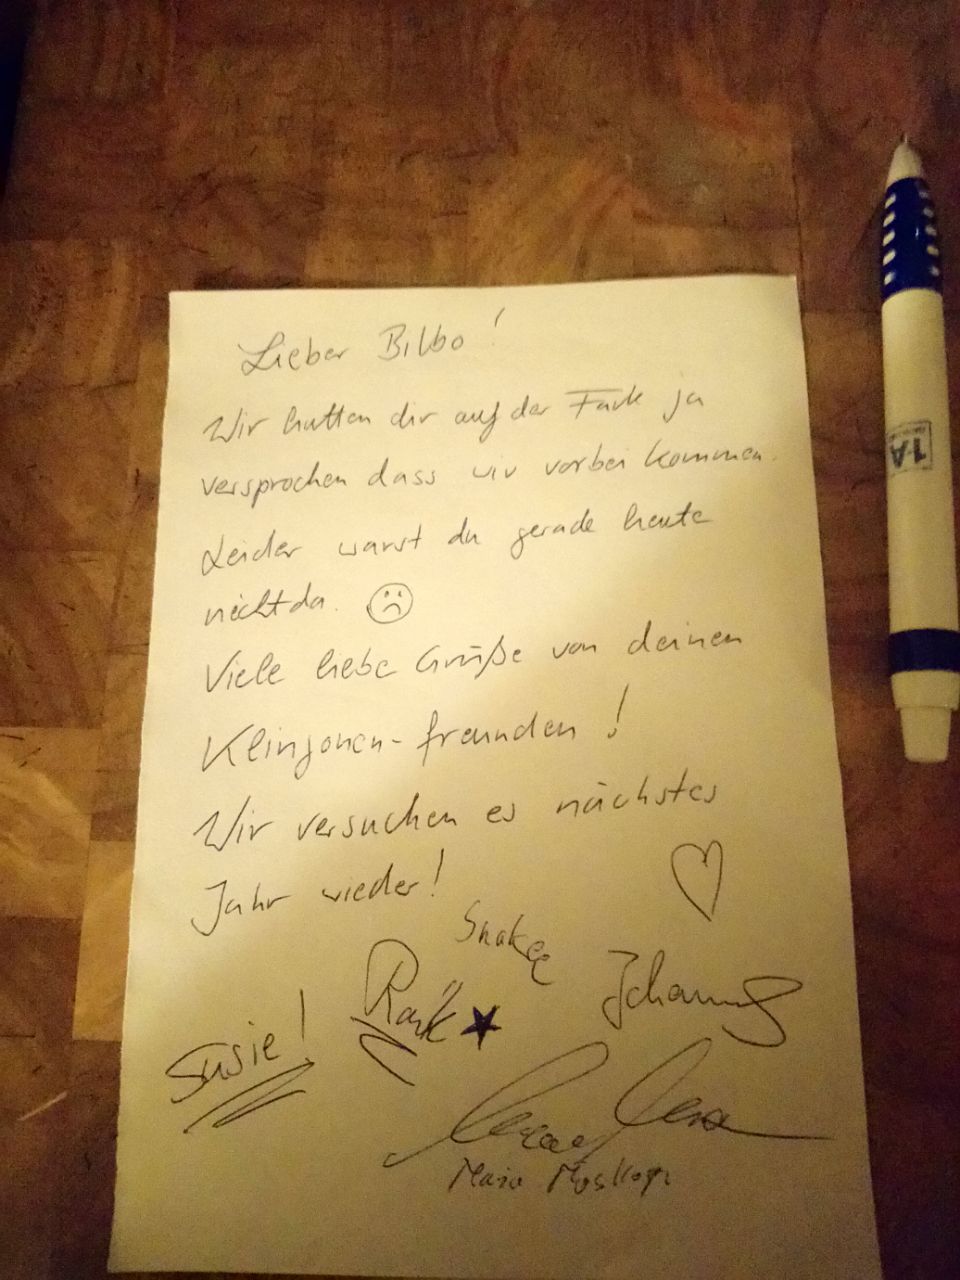 Lieber Bilbo!
Wir hatten dir auf der Fark ja
versprochen dass wir vorbei kommen.
Leider warst du gerade heute
nicht da. ☹
Viele liebe Grüße von deinen
Klingonen-freunden!
Wir versuchen es nächstes
Jahr wieder! ♡
Susie!
Johannes
Mario
1-A